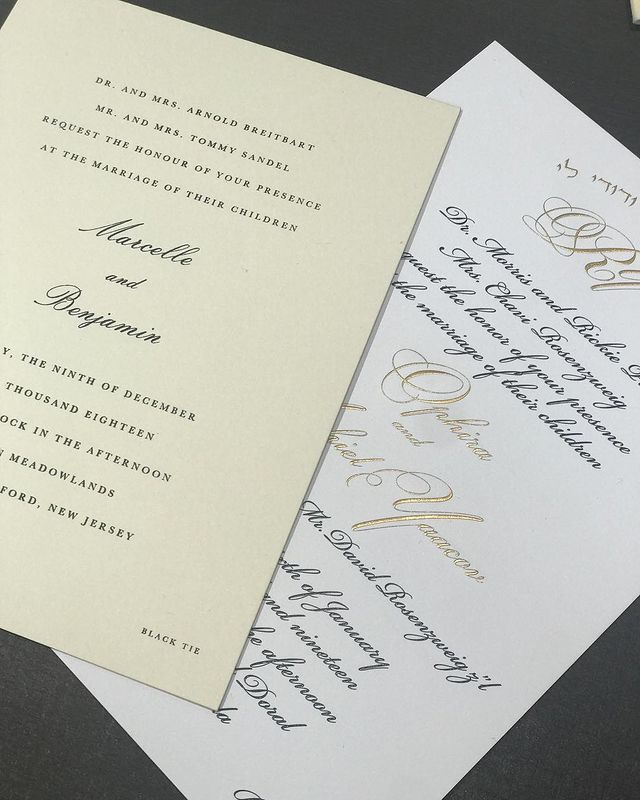 DR. AND MRS. ARNOLD BREITBART
MR. AND MRS. TOMMY SANDEL
REQUEST THE HONOUR OF YOUR PRESENCE
AT THE MARRIAGE OF THEIR CHILDREN
Marcelle
and
Benjamin
THE NINTH OF DECEMBER
THOUSAND EIGHTEEN
IN THE AFTERNOON
MEADOWLANDS
NEW JERSEY
BLACK TIE
ודודי לי
Dr. Morris and Rickie
Mrs. Chavi Rosenzweig
the honor of your presence
the marriage of their children
Ophira
and
Yaacov
Mr. David Rosenzweig z"l
of January
and nineteen
afternoon
Doral